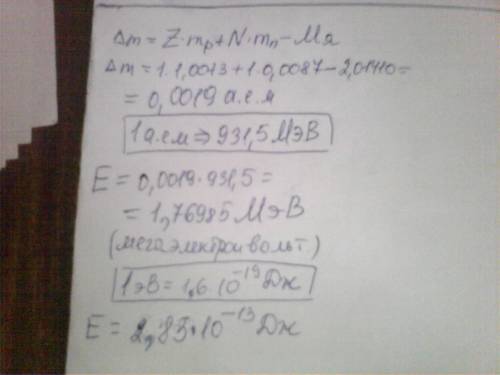 Δm = Z·mp+N·mn–Mя
Δm = 1·1,0073+1·0,0087–2,01410=
= 0,0019 а.е.м
1 а.е.м ⇒ 931,5 МэВ
E = 0,0019·931,5 =
= 1,76985 МэВ
(мегаэлектрон вольт)
1 эВ = 1,6·10⁻¹⁹ Дж
E = 2,83·10⁻¹³ Дж